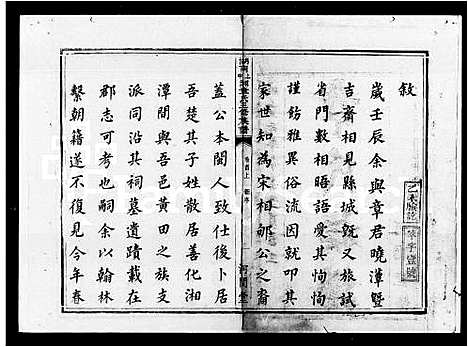 敘
歲壬辰余與章君曉潭暨
吉齋相見縣城既又旅試
省門數相晤語愛其恂恂
謹飭雅異俗流因就詢其
家世知為宋相郇公之裔
卷首上
河間堂
蓋公本閩人致仕後卜居
吾楚其子姓散居善化湘
潭間與吾邑黃田之族支
派同沿其祠墓遺蹟載在
郡志可考也嗣余以翰林
繫朝籍遂不復見今年春